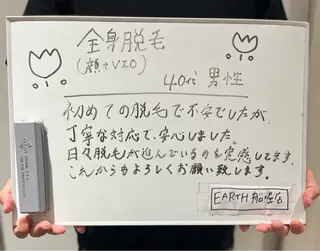 全身脱毛
(顔+VIO)
40代 男性
初めての脱毛で不安でしたが、
丁寧な対応で、安心しました。
日々脱毛が進んでいるのを実感してます。
これからもよろしくお願い致します。
EARTH 船堀店